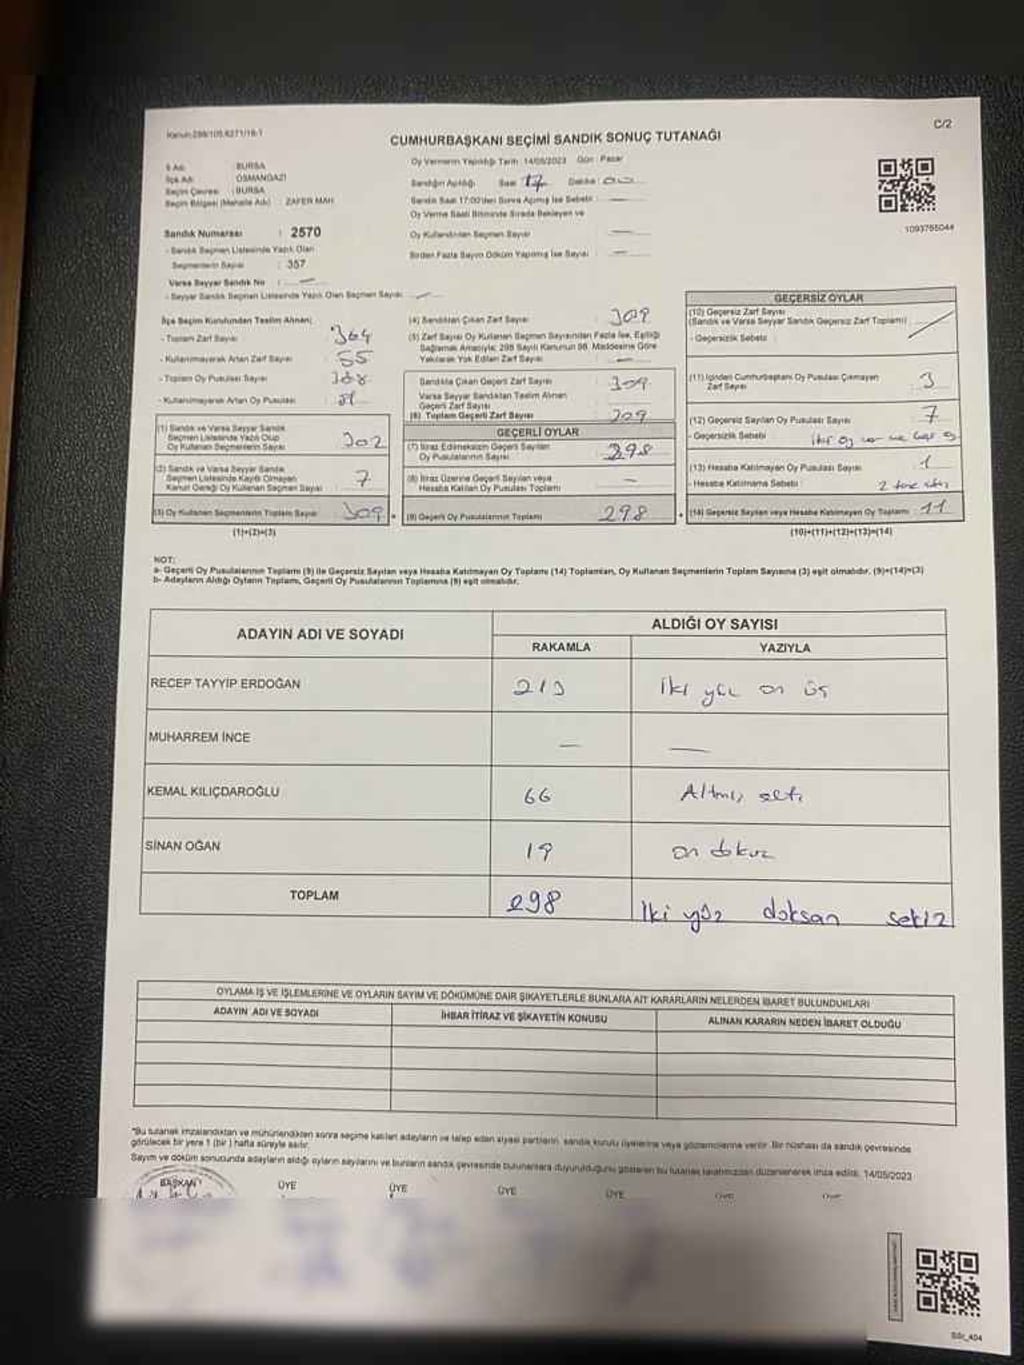 Kanun:298/105,6271/18-1
C/2
CUMHURBAŞKANI SEÇİMİ SANDIK SONUÇ TUTANAĞI
İl Adı : BURSA
İlçe Adı : OSMANGAZİ
Seçim Çevresi : BURSA
Seçim Bölgesi (Mahalle Adı) : ZAFER MAH.
Oy Vermenin Yapıldığı Tarih : 14/05/2023 Gün : Pazar
Sandığın Açıldığı Saat : 17 Dakika : 00
Sandık Saat 17:00'den Sonra Açılmış İse Sebebi : —
Oy Verme Saati Bitiminde Sırada Bekleyen ve
Oy Kullandırılan Seçmen Sayısı : —
Birden Fazla Sayım Döküm Yapılmış İse Sayısı : —
1093765044
Sandık Numarası : 2570
- Sandık Seçmen Listesinde Yazılı Olan
Seçmenlerin Sayısı : 357
Varsa Seyyar Sandık No : —
- Seyyar Sandık Seçmen Listesinde Yazılı Olan Seçmen Sayısı : —
İlçe Seçim Kurulundan Teslim Alınan;
- Toplam Zarf Sayısı : 364
- Kullanılmayarak Artan Zarf Sayısı : 55
- Toplam Oy Pusulası Sayısı :
- Kullanılmayarak Artan Oy Pusulası :
(1) Sandık ve Varsa Seyyar Sandık
Seçmen Listesinde Yazılı Olup
Oy Kullanan Seçmenlerin Sayısı 302
(2) Sandık ve Varsa Seyyar Sandık
Seçmen Listesinde Kayıtlı Olmayan
Kanun Gereği Oy Kullanan Seçmen Sayısı 7
(3) Oy Kullanan Seçmenlerin Toplam Sayısı 309
(1)+(2)=(3)
(4) Sandıktan Çıkan Zarf Sayısı : 309
(5) Zarf Sayısı Oy Kullanan Seçmen Sayısından Fazla İse, Eşitliği
Sağlamak Amacıyla; 298 Sayılı Kanunun 98. Maddesine Göre
Yakılarak Yok Edilen Zarf Sayısı : —
Sandıkta Çıkan Geçerli Zarf Sayısı : 309
Varsa Seyyar Sandıktan Teslim Alınan
Geçerli Zarf Sayısı :
(6) Toplam Geçerli Zarf Sayısı : 309
GEÇERLİ OYLAR
(7) İtiraz Edilmeksizin Geçerli Sayılan
Oy Pusulalarının Sayısı : 298
(8) İtiraz Üzerine Geçerli Sayılan veya
Hesaba Katılan Oy Pusulaları Toplamı : —
(9) Geçerli Oy Pusulalarının Toplamı : 298
GEÇERSİZ OYLAR
(10) Geçersiz Zarf Sayısı
(Sandık ve Varsa Seyyar Sandık Geçersiz Zarf Toplamı)
- Geçersizlik Sebebi :
(11) İçinden Cumhurbaşkanı Oy Pusulası Çıkmayan
Zarf Sayısı : 3
(12) Geçersiz Sayılan Oy Pusulası Sayısı : 7
- Geçersizlik Sebebi :
(13) Hesaba Katılmayan Oy Pusulası Sayısı : 1
- Hesaba Katılmama Sebebi : 2 tane
(14) Geçersiz Sayılan veya Hesaba Katılmayan Oy Toplamı : 11
(10)+(11)+(12)+(13)=(14)
NOT:
a- Geçerli Oy Pusulalarının Toplamı (9) ile Geçersiz Sayılan veya Hesaba Katılmayan Oy Toplamı (14) Toplamları, Oy Kullanan Seçmenlerin Toplam Sayısına (3) eşit olmalıdır. (9)+(14)=(3)
b- Adayların Aldığı Oyların Toplamı, Geçerli Oy Pusulalarının Toplamına (9) eşit olmalıdır.
ADAYIN ADI VE SOYADI
ALDIĞI OY SAYISI
RAKAMLA YAZIYLA
RECEP TAYYİP ERDOĞAN 213 İki yüz on üç
MUHARREM İNCE — —
KEMAL KILIÇDAROĞLU 66 Altmış altı
SİNAN OĞAN 19 on dokuz
TOPLAM 298 İki yüz doksan sekiz
OYLAMA İŞ VE İŞLEMLERİNE VE OYLARIN SAYIM VE DÖKÜMÜNE DAİR ŞİKAYETLERLE BUNLARA AİT KARARLARIN NELERDEN İBARET BULUNDUKLARI
ADAYIN ADI VE SOYADI İHBAR İTİRAZ VE ŞİKAYETİN KONUSU ALINAN KARARIN NEDEN İBARET OLDUĞU
*Bu tutanak imzalandıktan ve mühürlendikten sonra seçime katılan adayların ve talep eden siyasi partilerin, sandık kurulu üyelerine veya gözlemcilerine verilir. Bir nüshası da sandık çevresinde
görülecek bir yere 1 (bir ) hafta süreyle asılır.
Sayım ve döküm sonucunda adayların aldığı oyların sayılarını ve bunların sandık çevresinde bulunanlara duyurulduğunu gösteren bu tutanak tarafımızdan düzenlenerek imza edildi. 14/05/2023
BAŞKAN ÜYE ÜYE ÜYE ÜYE ÜYE ÜYE